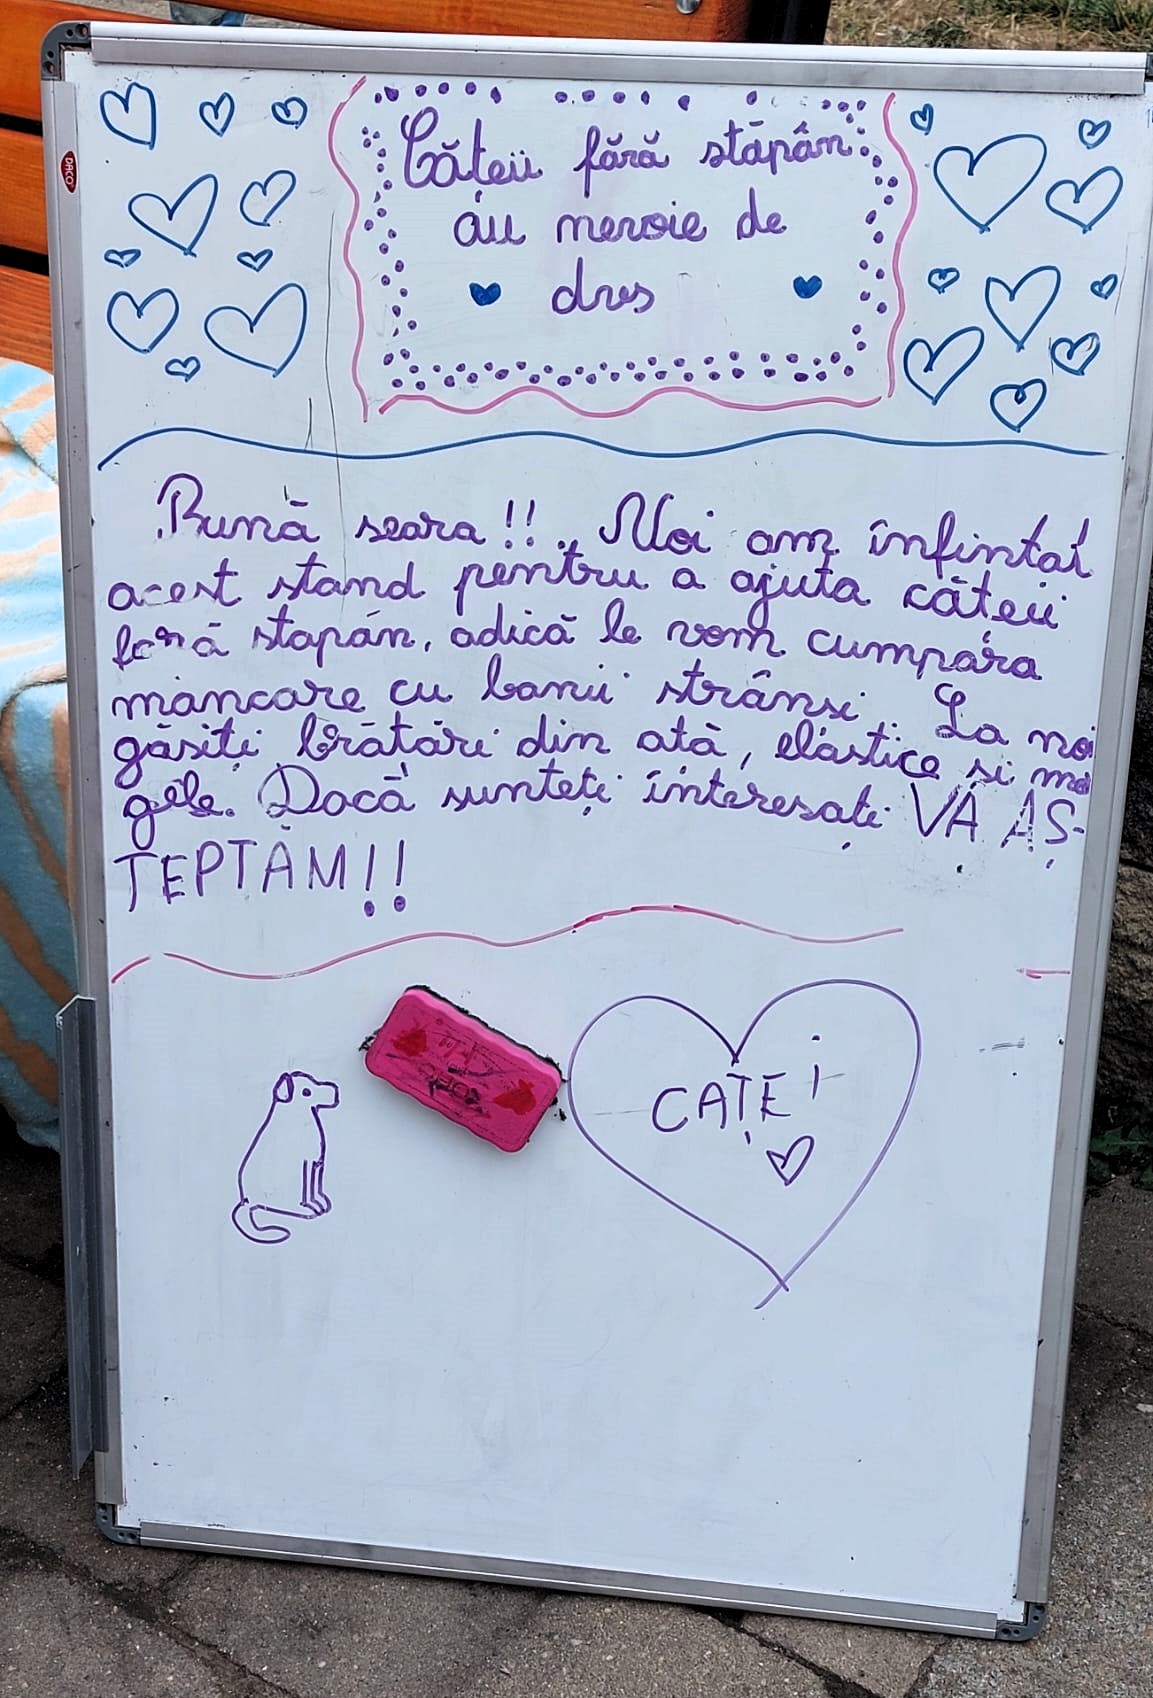 Cățeii fără stăpân
au nevoie de
dres
Bună seara!! Noi am înfintat
acest stand pentru a ajuta cățeii
fără stapân, adică le vom cumpăra
mâncare cu banii strânsi. La noi
găsiți brățări din ată, elastice si măr
gele. Dacă sunteți interesați VĂ AȘ-
TEPTĂM!!
CAȚEi
DACO